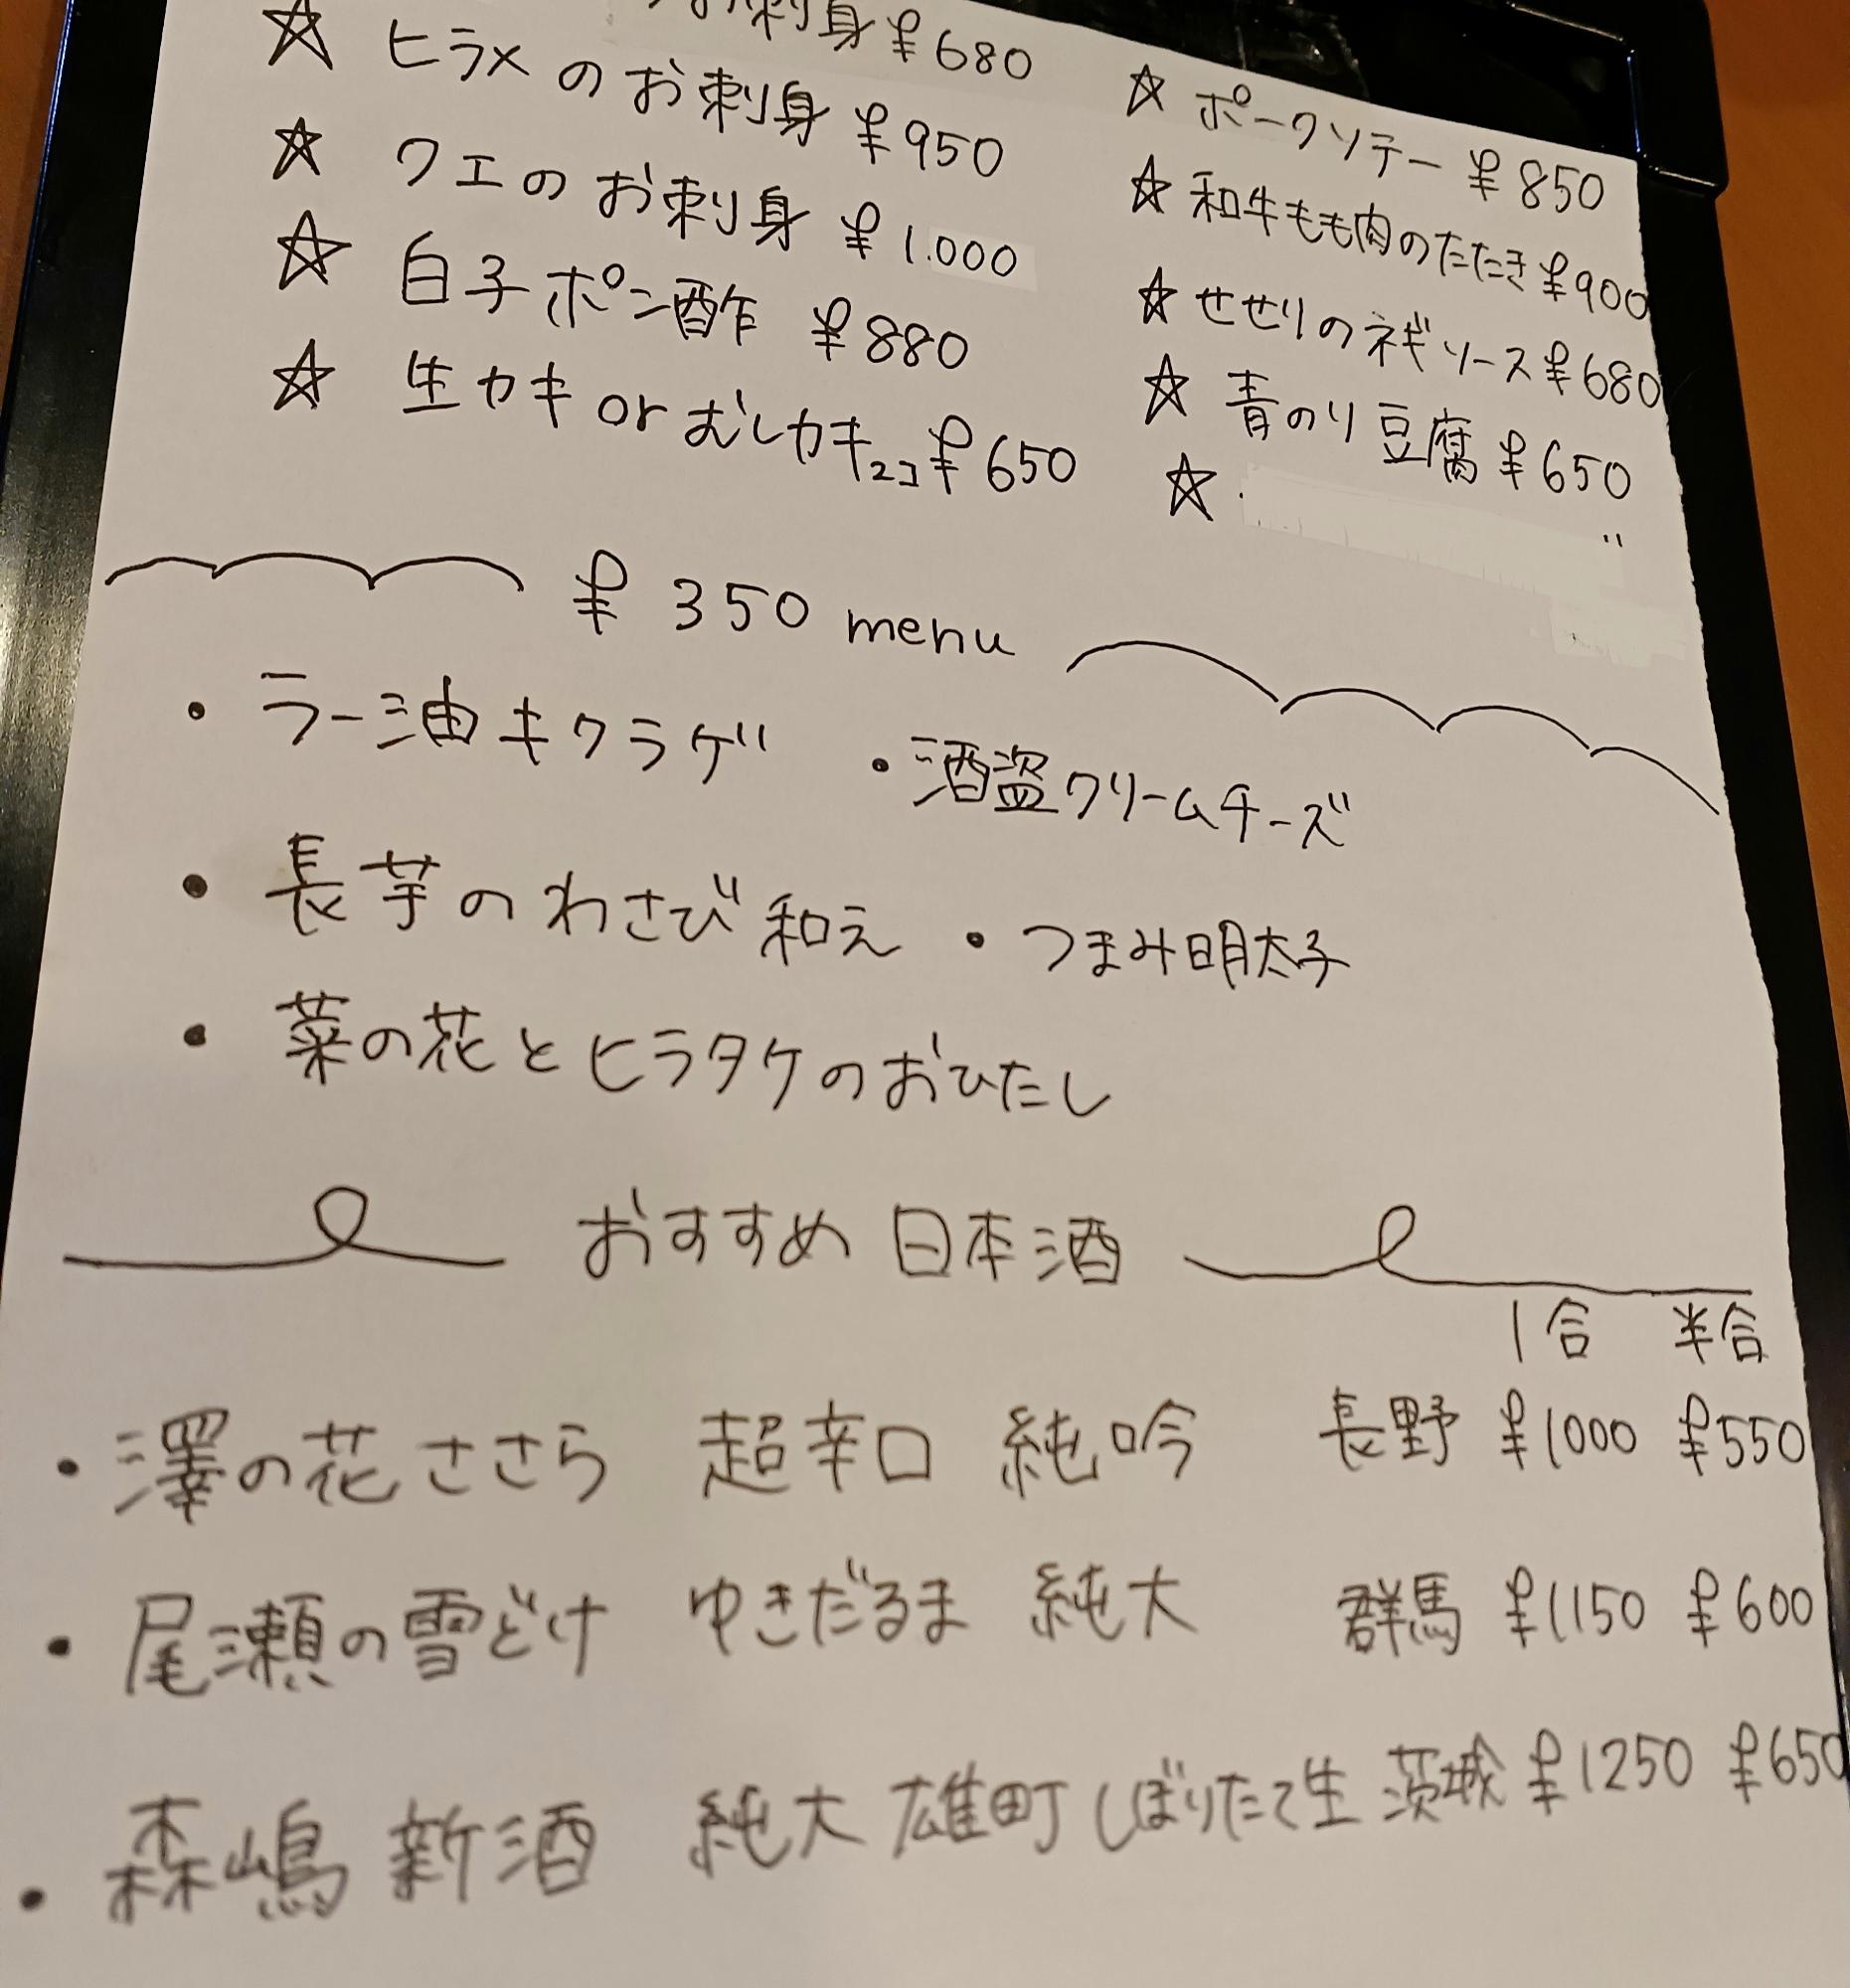 お刺身 ¥680
☆ ヒラメのお刺身 ¥950
☆ クエのお刺身 ¥1.000
☆ 白子ポン酢 ¥880
☆ 生カキ or むしカキ2コ ¥650
☆ ポークソテー ¥850
☆ 和牛もも肉のたたき ¥900
☆ せせりのネギソース ¥680
☆ 青のり豆腐 ¥650
☆
¥350 menu
・ラー油キクラゲ ・酒盗クリームチーズ
・長芋のわさび和え ・つまみ明太子
・菜の花とヒラタケのおひたし
おすすめ 日本酒
1合 半合
・澤の花 ささら 超辛口 純吟 長野 ¥1000 ¥550
・尾瀬の雪どけ ゆきだるま 純大 群馬 ¥1150 ¥600
・森嶋 新酒 純大 雄町 しぼりたて生 茨城 ¥1250 ¥650